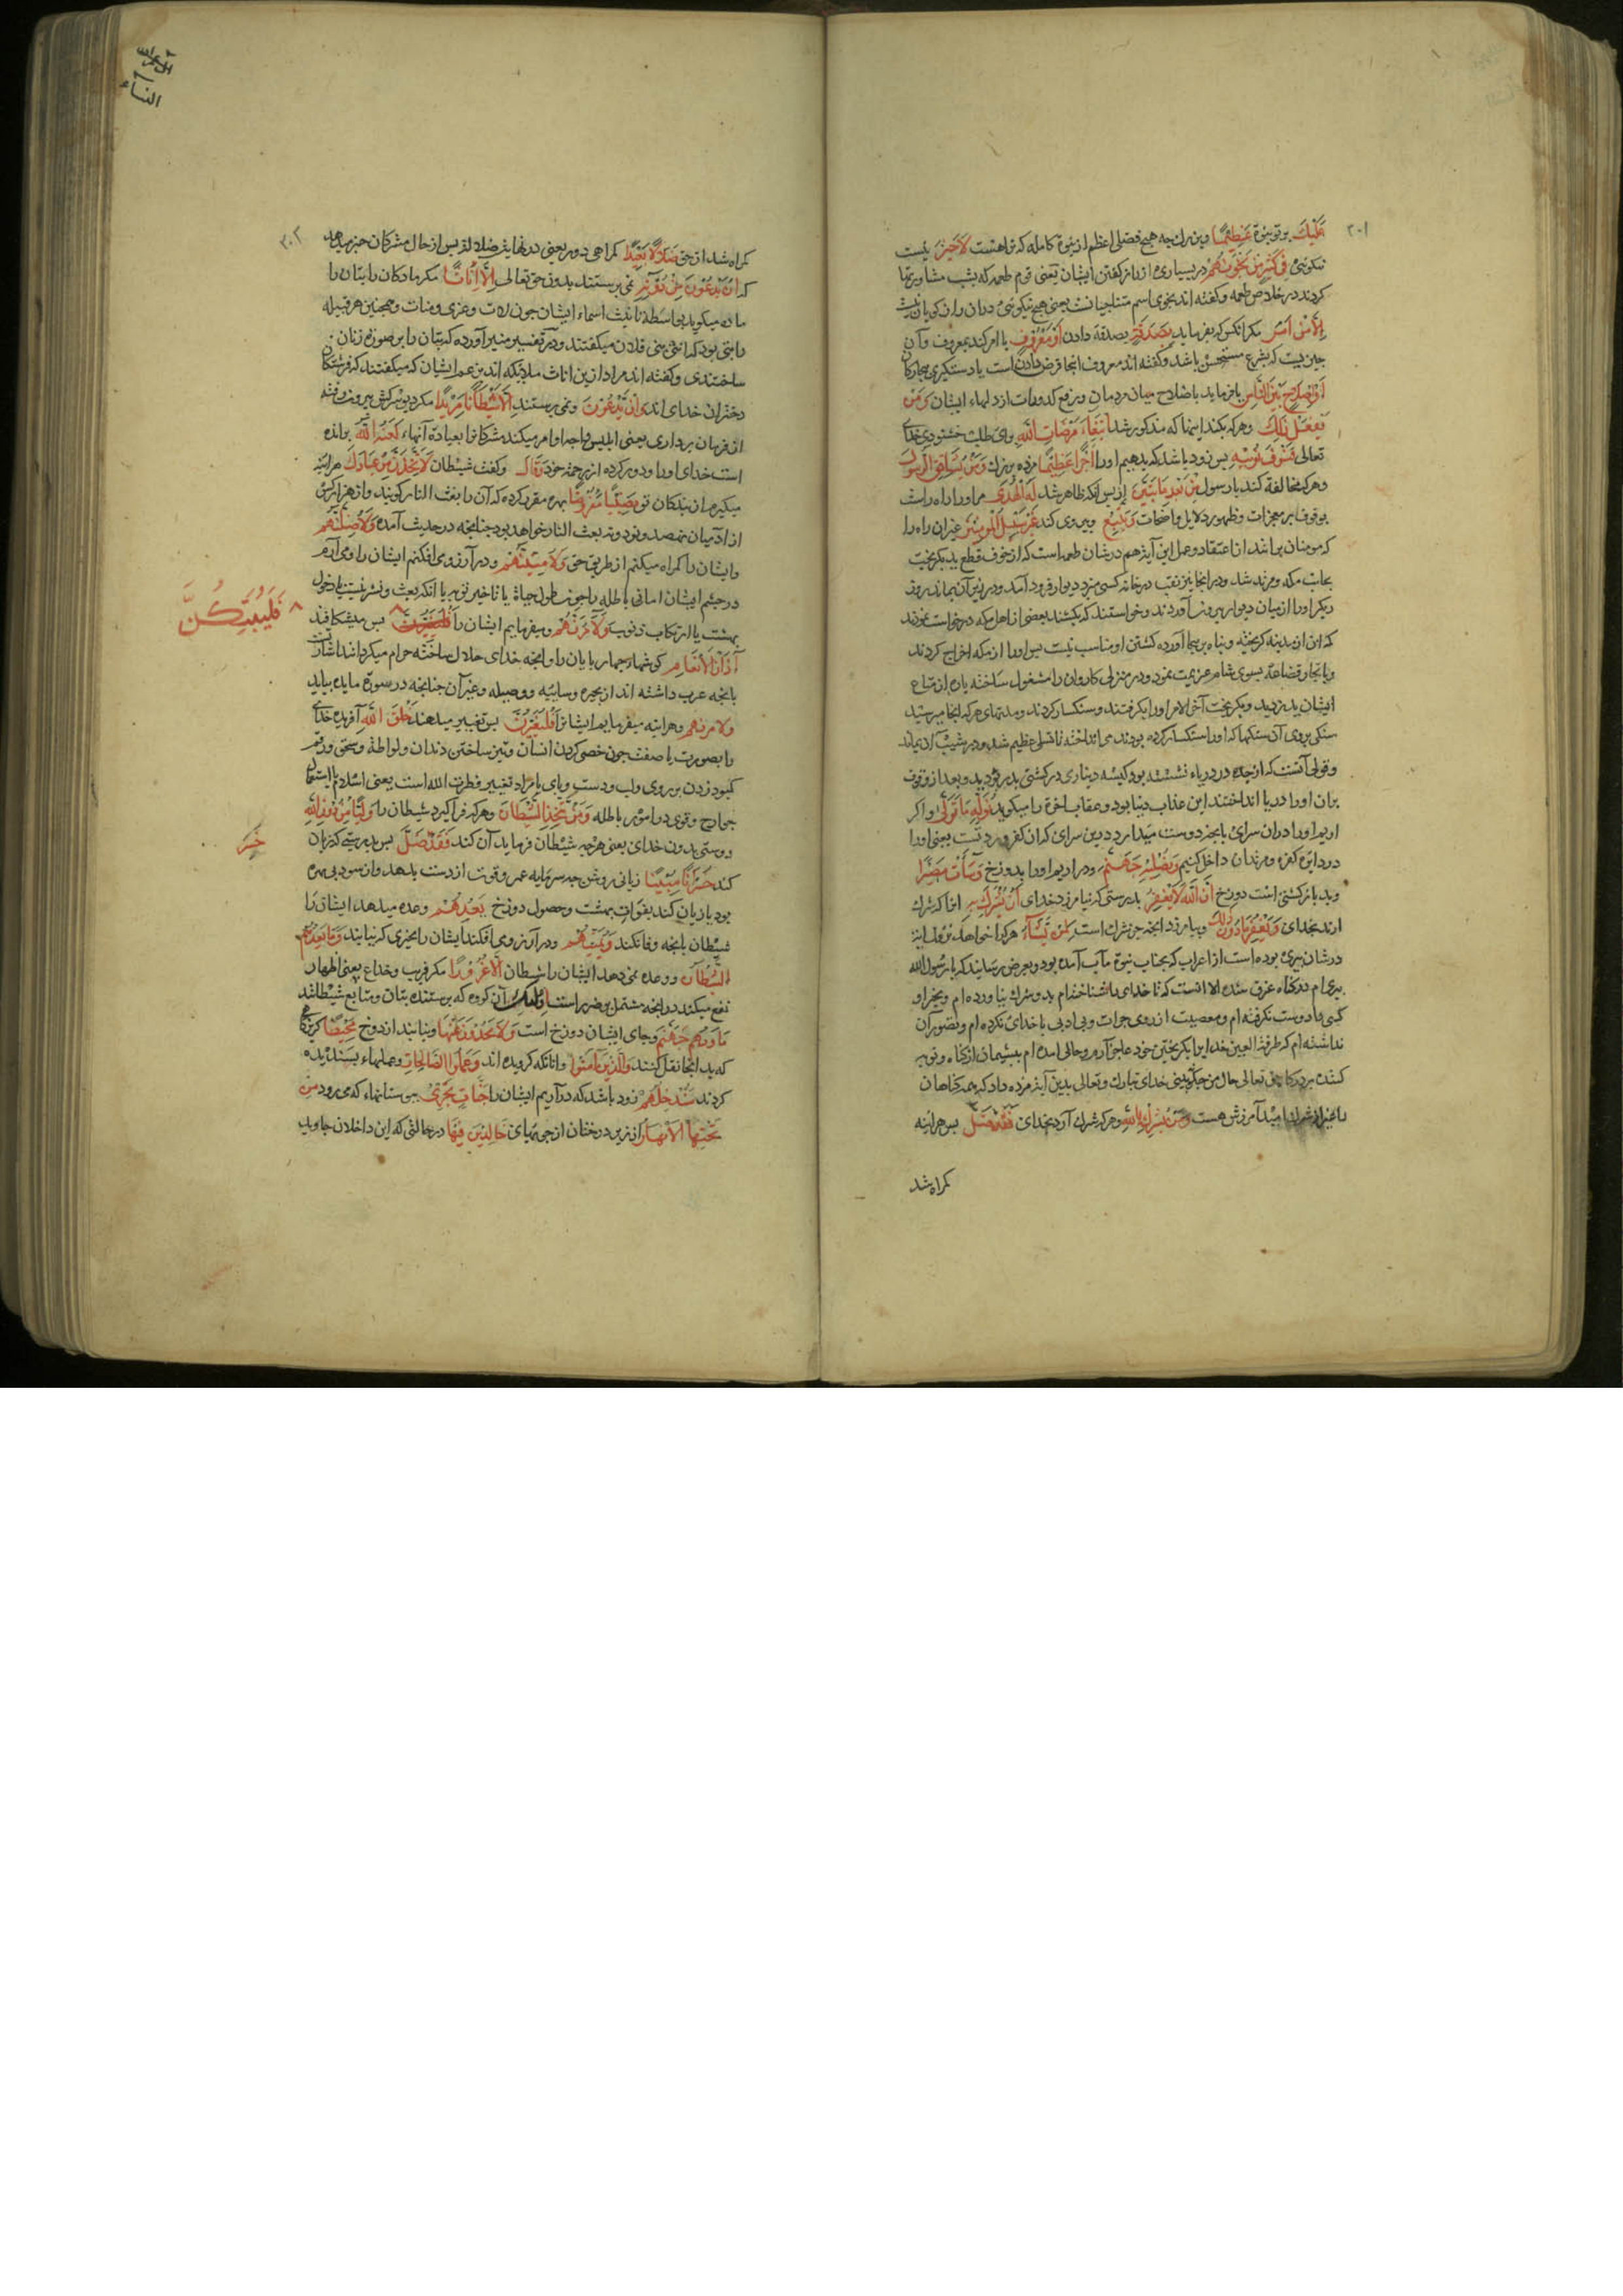 ٢٠١
عَلَیْكَ بر تو بنبوة عَظِیْمًا وبزرك چه هیچ فضلی اعظم از نبوة کامله که تراهست لَاخَیْرَ نیست
نیکوئی فِی کَثِیْرٍ مِنْ نَجْوٰیهُمْ در بسیاری از راز گفتن ایشان یعنی قوم طعمه که بشب مشاورتها
کردند در خلاص طعمه وگفته اند نجوی اسم متناجیانست یعنی هیچ نیکوئی دران راز کویان نیست
اِلَّا مَنْ اَمَرَ مکر انکس که بفرماید بِصَدَقَةٍ بصدقه دادن اَوْ مَعْرُوْفٍ یا امر کند بمعروف وآن
چیزیست که بشرع مستحسن باشد وکفته اند معروف اینجا قرض دادن است یا دستکیری بیچارکان
اَوْ اِصْلَاحٍ بَیْنَ النَّاسِ یا فرماید باصلاح میان مردمان ورفع کدورات از دلهاء ایشان وَمَنْ
یَفْعَلْ ذٰلِكَ وهرکه بکند اینها که مذکور شد اِبْتِغَاءَ مَرْضَاتِ اللّٰهِ برای طلب خشنودی خدای
تعالی فَسَوْفَ نُؤْتِیْهِ پس زود باشد که بدهیم اورا اَجْرًا عَظِیْمًا مزده بزرك وَمَنْ یُشَاقِقِ الرَّسُوْلَ
وهرکه مخالفة کند با رسول مِنْ بَعْدِ مَا تَبَیَّنَ از پس انکه ظاهر شد لَهُ الْهُدٰی مر اورا راه راست
بوقوف بر معجزات وظهور دلایل واضحات وَیَتَّبِعْ وپیروی کند غَیْرَ سَبِیْلِ الْمُؤْمِنِیْنَ غیر ان راه را
که مومنان برانند از اعتقاد وعمل این آیة هم در شان طعمه است که از خوف قطع ید بکریخت
بجانب مکه ومرتد شد ودر انجا نیز نقب در خانه کسی میزد دیوار فرود آمد ودر زیر آن بماند روز
دیکر اورا از میان دیوار بیرون آوردند وخواستند که بکشند بعضی از اهل مکه درخواست نمودند
که این از مدینه کریخته وپناه بما آورده کشتن او مناسب نیست پس اورا از مکه اخراج کردند
وبا تجار قضاعه بسوی شام عزیمت نمود ودر منزلی کاروان را مشغول ساخته پاره از متاع
ایشان بدزدید وبکریخت آخر الامر اورا بکرفتند وسنکسار کردند ومدتهای هرکه انجا میرسید
سنکی بروی آن سنکها که اورا سنکسار کرده بودند می انداخت تا تلی عظیم شد ودر شیب آن بماند
وقولی آنست که از جده در دریاء نشسته بود کیسه دیناری در کشتی بدزدید وبعد از وقوف
بران اورا در دریا انداختند این عذاب دنیا بود وعقاب آخرة را میکوید نُوَلِّهٖ مَا تَوَلّٰی واکر
اریم اورا دران سرای بانچه دوست میدارد درین سرای که ان کفر وردتست یعنی اورا
در دایره کفره ومرتدان داخل کنیم وَنُصْلِهٖ جَهَنَّمَ ودر اریم اورا بدوزخ وَسَاءَتْ مَصِیْرًا
وبد بازکشتی است دوزخ اِنَّ اللّٰهَ لَایَغْفِرُ بدرستی که نیامرزد خدای اَنْ یُشْرَكَ بِهٖ انرا که شرك
ارند بخدای وَیَغْفِرُ مَا دُوْنَ ذٰلِكَ وبیامرزد انچه جز شرك است لِمَنْ یَشَاءُ هرکرا خواهد نزول اینه
در شان پیری بوده است از اعراب که بجناب نبوة مآب آمده بود وبعرض رسانید که یا رسول الله
پیری ام در کناه غرق شده الا انست که تا خدای را شناختم بدو شرك نیاورده ام وبجز او
کسی را دوست نکرفته ام ومعصیت از روی جرات وبی ادبی با خدای نکرده ام وتصور آن
نداشته ام که طرفة العین خدایرا بکریختن خود عاجز آرم وحالی امده ام پشیمان از کناه وتوبه
کننده بدرکاه حق تعالی حال من چکونه بینی خدای تبارك وتعالی بدین آیة مزده داد که همه کناهان
را غیر از شرك امید آمرزش هست وَمَنْ یُشْرِكْ بِاللّٰهِ وهرکه شرك آرد بخدای فَقَدْ ضَلَّ پس هراینه
کمراه شد
٢٠٢
ال عمران
النساء
کمراه شد از حق ضَلٰلًا بَعِیْدًا کمراهی دور یعنی در نهایت ضلالة پس از حال مشرکان خبر میدهد
که اِنْ یَدْعُوْنَ مِنْ دُوْنِهٖ نمی پرستند بدون حق تعالی اِلَّا اِنَاثًا مکر مادکان را بتان را
ماده میکوید بواسطه تانیث اسماء ایشان چون لات وعزی ومنات وهمچنین هر قبیله
را بتی بود که انثی بنی فلان میکفتند ودر تفسیر منیر آورده که بتان را بر صورة زنان
ساختندی وکفته اند مراد از ین اناث ملائکه اند بزعم ایشان که میکفتند که فرشتکان
دختران خدای اند وَاِنْ یَدْعُوْنَ ونمی پرستند اِلَّا شَیْطَانًا مَرِیْدًا مکر دیو سرکش بیرون رفته
از فرمان برداری یعنی ابلیس واو امر میکند مشرکانرا بعبادة آنهاء لَعَنَهُ اللّٰهُ رانده
است خدای اورا ودور کرده از رحمة خود وَقَالَ وکفت شیطان لَاَتَّخِذَنَّ مِنْ عِبَادِكَ هراینه
میکیرم از بندکان تو نَصِیْبًا مَفْرُوْضًا بهره مقرر کرده که آن را بعث النار کویند واز هزار کس
از ادمیان نهصد ونود ونه بعث النار خواهد بود چنانچه در حدیث آمده وَلَاُضِلَّنَّهُمْ
وایشان را کمراه میکنم از طریق حق وَلَاُمَنِّیَنَّهُمْ ودر آرزوی افکنم ایشان را ومی آرم
در چشم ایشان امانی باطله را چون طول حیاة یا تاخیر توبه یا انکه بعث ونشر نیست یا دخول
بهشت با ارتکاب ذنوب وَلَاٰمُرَنَّهُمْ ومیفرمایم ایشان را پس میشکافند
فَلَیُبَتِّکُنَّ
اٰذَانَ الْاَنْعَامِ کوشهاء چهار پایان را وانچه خدای حلال ساخته حرام میکردانند اشارت
بانچه عرب داشته اند از بحیره وسایبه ووصیله وغیر آن چنانچه در سورة مایده بیاید
ولامرنهم وهراینه میفرمایم ایشانرا فَلَیُغَیِّرُنَّ پس تغییر میدهند خَلْقَ اللّٰهِ آفریده خدای
را بصورت یا صفت چون خصی کردن انسان وتیز ساختن دندان ولواطه وسحق ورقم
کبود زدن بر روی ولب ودست وپای یا مراد تغییر فطرت الله است یعنی اسلام یا استعمال
جوارح وقوی در امور باطله وَمَنْ یَتَّخِذِ الشَّیْطَانَ وهرکه فراکیرد شیطان را وَلِیًّا مِنْ دُوْنِ اللّٰهِ
دوستی بدون خدای یعنی هرچه شیطان فرماید آن کند فَقَدْ خَسِرَ پس بدرستی که زیان
خَسِرَ
کند خُسْرَانًا مُبِیْنًا زیانی روشن چه سرمایه عمر وقوت از دست بدهد وازسود بی بهره
بود یا زیان کند بفوات بهشت وحصول دوزخ یَعِدُهُمْ وعده میدهد ایشان را
شیطان بانچه وفا نکند وَیُمَنِّیْهِمْ ودر آرزومی افکند ایشان را بچیزی که نیابند وَمَا یَعِدُهُمُ
الشَّیْطَانُ ووعده نمی دهد ایشان را شیطان اِلَّا غُرُوْرًا مکر فریب وخداع یعنی اظهار
نفع میکند در انچه مشتمل بر ضرر است اُولٰئِكَ آن کروه که پرستنده بتان ومتابع شیطانند
مَاْوٰیهُمْ جَهَنَّمُ وجای ایشان دوزخ است وَلَایَجِدُوْنَ عَنْهَا ونیابند از دوزخ مَحِیْصًا کریزکاه
که بد انجا نقل کنند وَالَّذِیْنَ اٰمَنُوْا وانانکه کرویده اند وَعَمِلُوا الصَّالِحَاتِ وعملهاء پسندیده
کردند سَنُدْخِلُهُمْ زود باشد که در آریم ایشان را جَنَّاتٍ تَجْرِیْ ببوستانهاء که می رود مِنْ
تَحْتِهَا الْاَنْهَارُ از زیر درختان از جویهای خَالِدِیْنَ فِیْهَا در حالتی که این داخلان جاوید